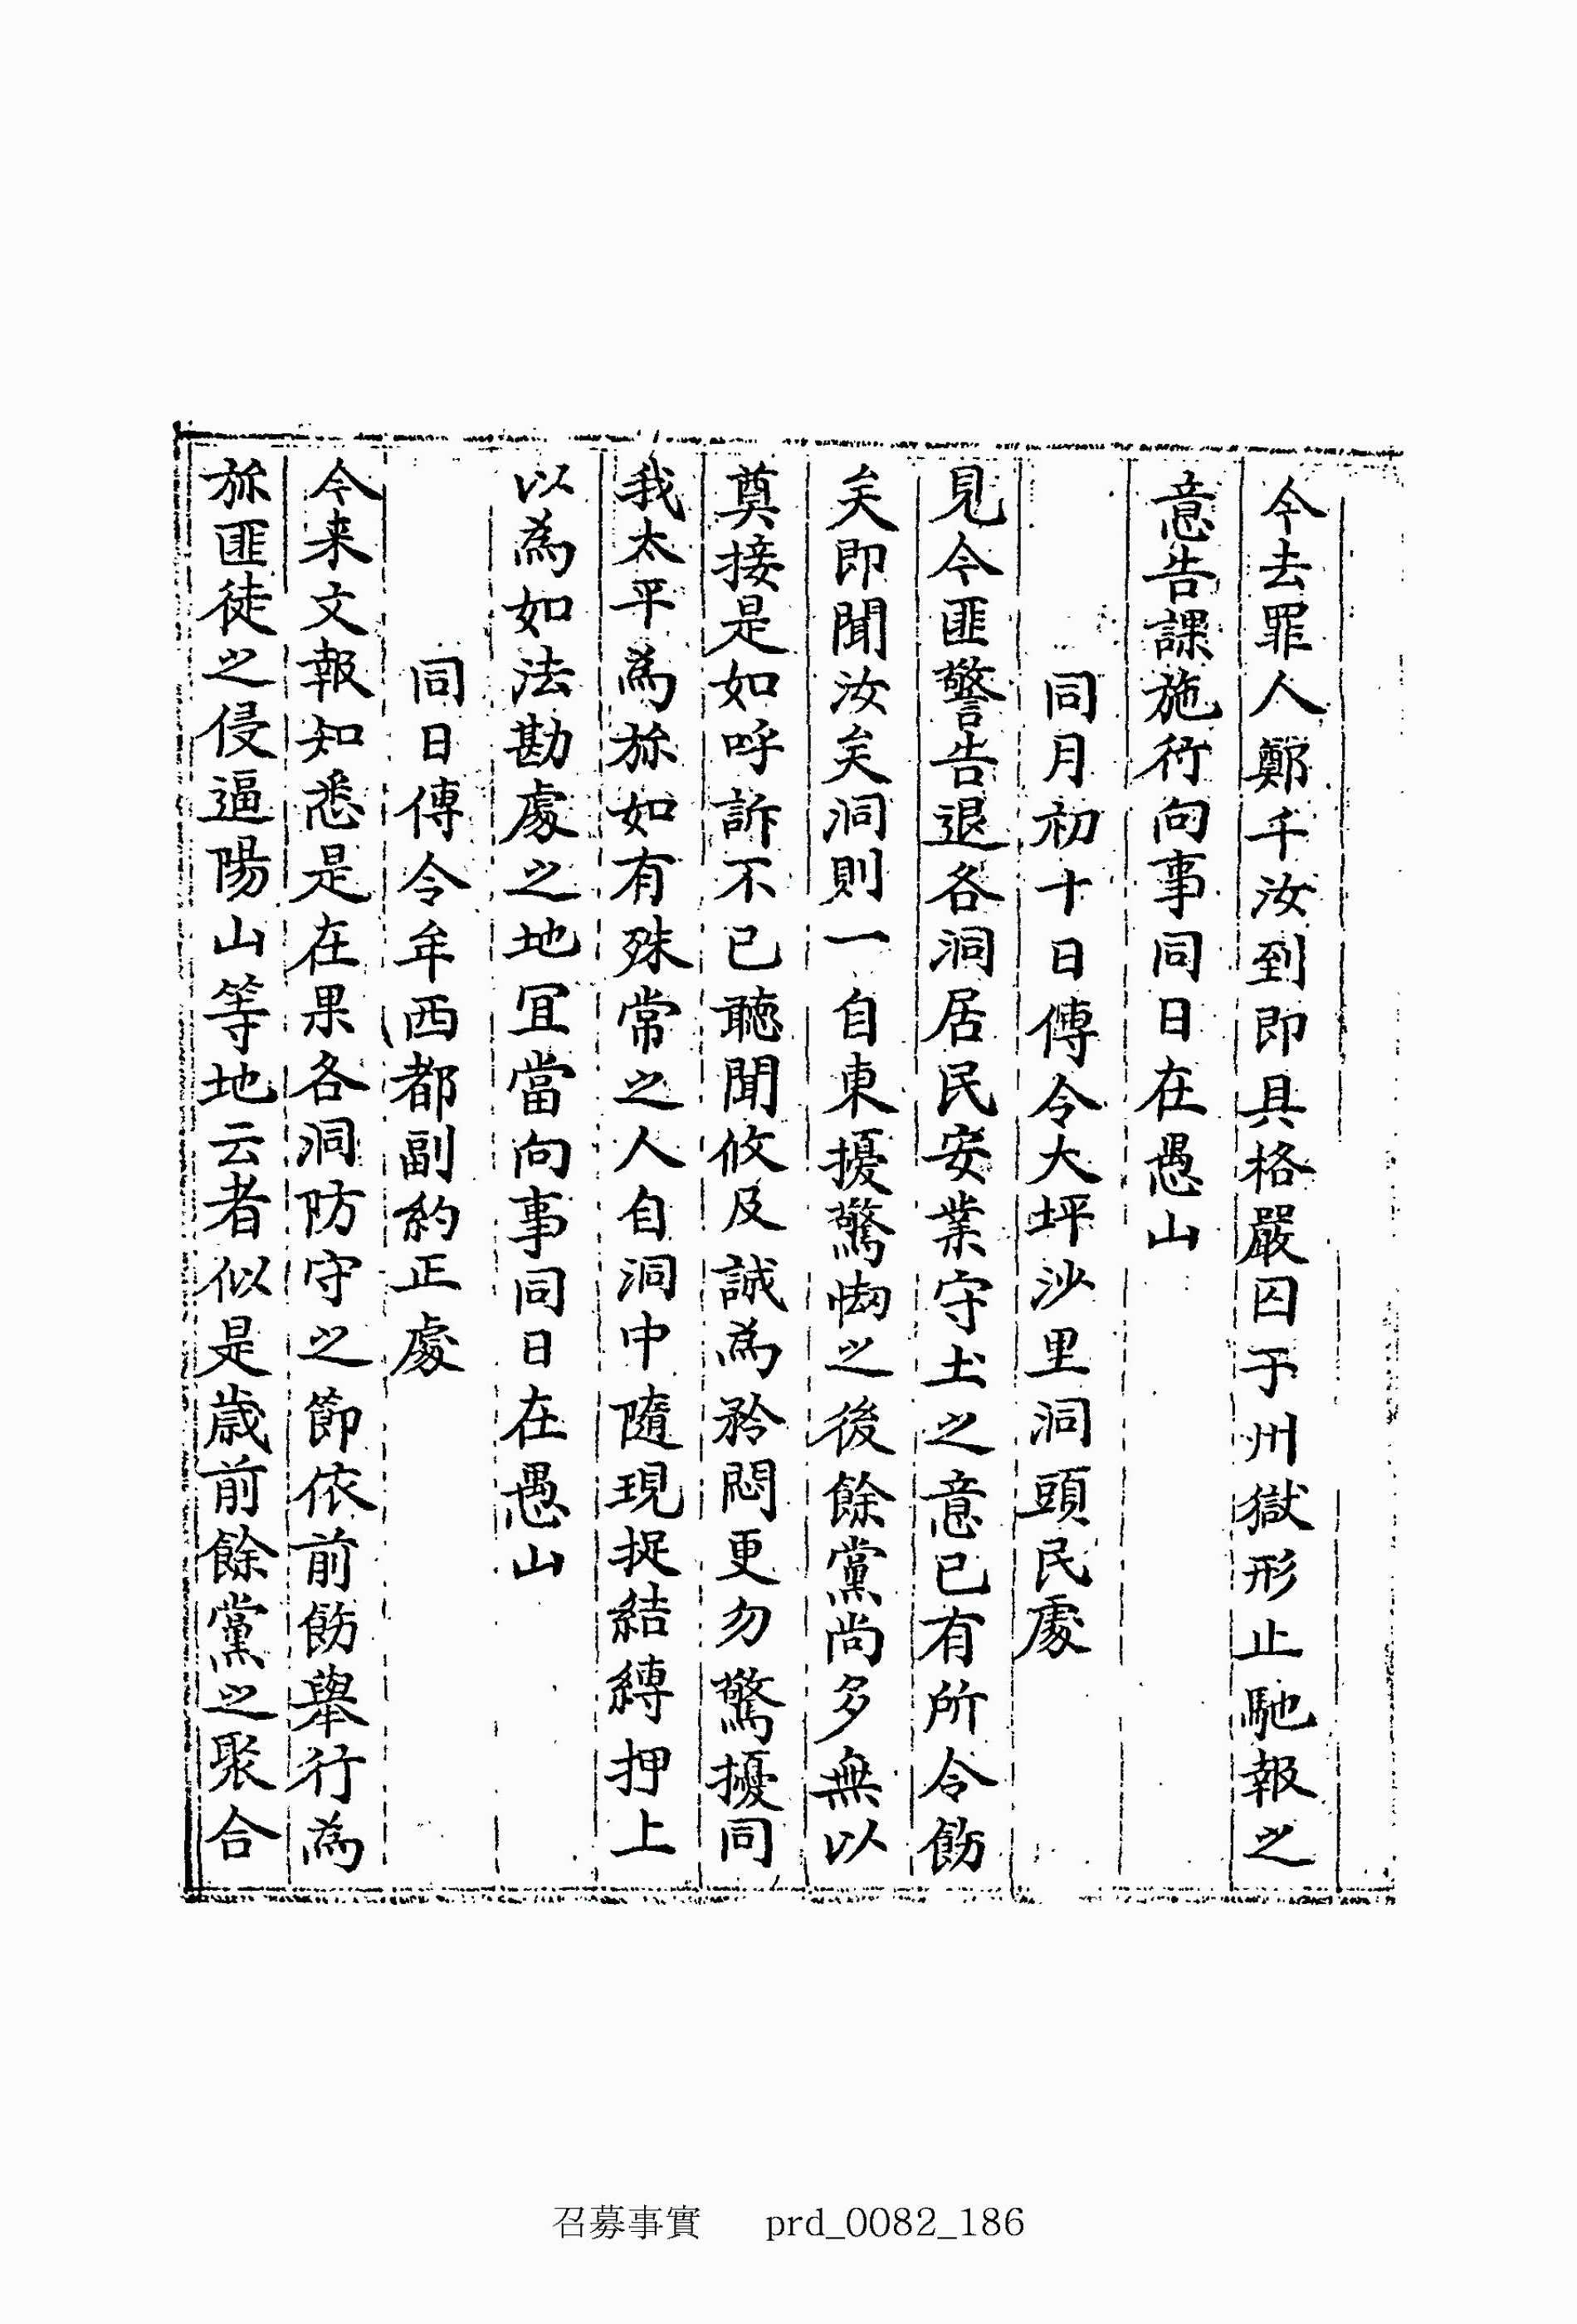 今去罪人鄭千汝到即具格嚴囚于州獄形止馳報之
意告課施行向事同日在愚山
同月初十日傳令大坪沙里洞頭民處
見今匪警告退各洞居民安業守土之意已有所令飭
矣即聞汝矣洞則一自東擾驚㤼之後餘黨尚多無以
奠接是如呼訴不已聽聞攸及誠爲矜悶更勿驚擾同
我太平爲旀如有殊常之人自洞中隨現捉結縛押上
以爲如法勘處之地冝當向事同日在愚山
同日傳令牟西都副約正處
今来文報知悉是在果各洞防守之節依前飭舉行爲
旀匪徒之侵逼陽山等地云者似是歳前餘黨之聚合
召募事實 prd_0082_186